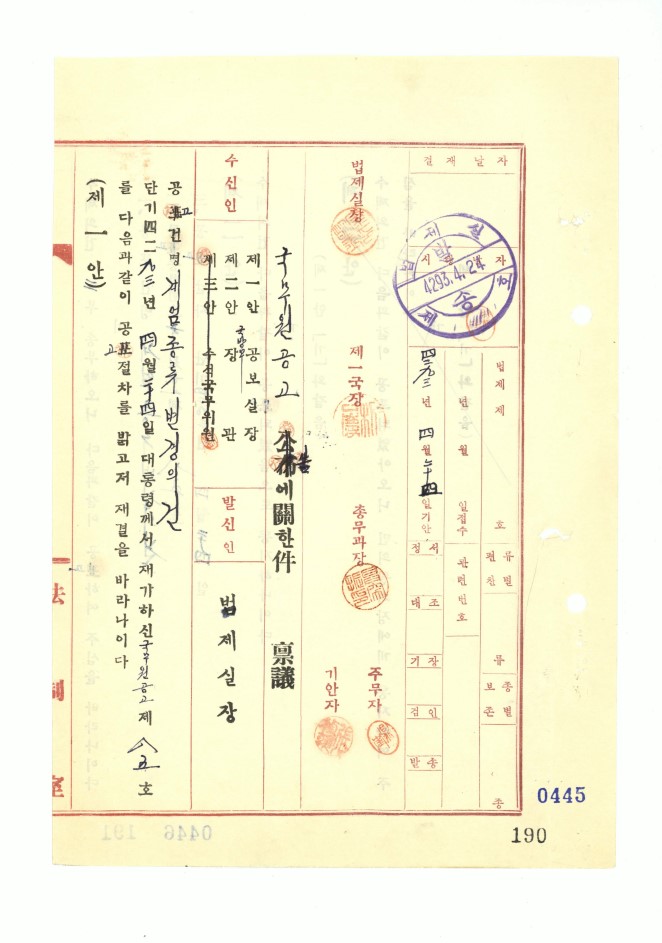 결재날자
법제실
시행날자
발송
4293. 4. 24
법제 제 호
년 월 일접수
관련번호
四二九三年 四월 二十四일기안
류별
편찬
종별
보존
류
종
정서
대조
기장
검인
발송
법제실장
제一국장
총무과장
주무자
기안자
국무원공고 公布에關한件 稟議
公告
수신인
제一안 공보실장
제二안 국방부장관
제三안 수석국무위원
발신인
법제실장
공고건명 계엄종류변경의건
단기四二九三년 四월二十四일 대통령께서 재가하신 국무원공고 제八五호
를 다음과같이 공고절차를 밝고저 재결을 바라나이다
(제一안)
法制室
0445
190
0446 191